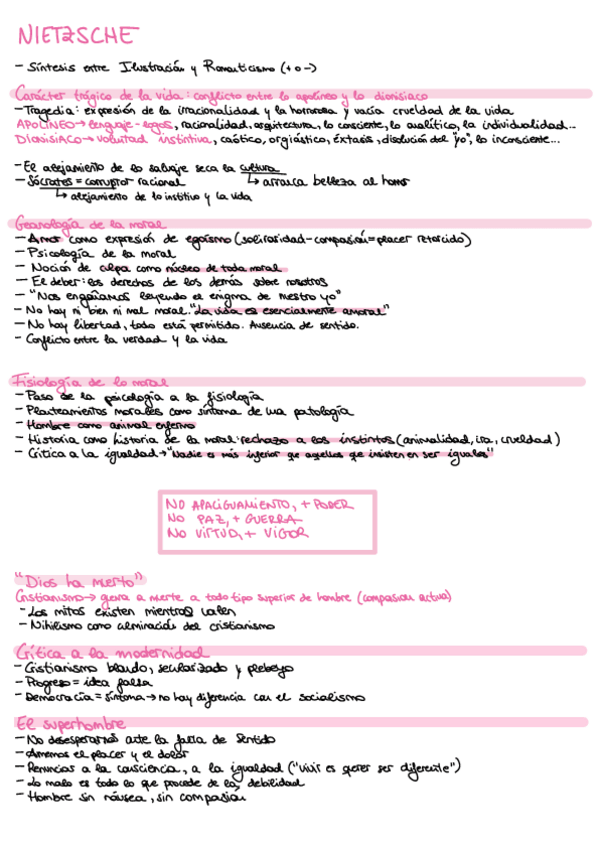 NIETZSCHE
- Síntesis entre Ilustración y Romanticismo (+ o -)
Carácter trágico de la vida: conflicto entre lo apolíneo y lo dionisiaco
- Tragedia: expresión de la irracionalidad y la horrorosa y vacía crueldad de la vida
APOLÍNEO → lenguaje-logos, racionalidad, arquitectura, lo consciente, lo analítico, la individualidad...
DIONISIACO → voluntad instintiva, caótico, orgiástico, éxtasis, disolución del "yo", lo inconsciente...
- El alejamiento de lo salvaje seca la cultura
- Sócrates = corruptor racional ↳ arranca belleza al horror
↳ alejamiento de lo institivo y la vida
Geanología de la moral
- Amor como expresión de egoísmo (solirasidad-compasión = placer retorcido)
- Psicología de la moral
- Noción de culpa como núcleo de toda moral
- El deber: los derechos de los demás sobre nosotros
- "Nos engañamos leyendo el enigma de nuestro yo"
- No hay ni bien ni mal moral. "La vida es esencialmente amoral"
- No hay libertad, todo está permitido. Ausencia de sentido.
- Conflicto entre la verdad y la vida
Fisiología de lo moral
- Paso de la psicología a la fisiología
- Planteamientos morales como síntoma de una patología
- Hombre como animal enfermo
- Historia como historia de la moral: rechazo a los instintos (animalidad, ira, crueldad)
- Crítica a la igualdad → "Nadie es más inferior que aquellos que insisten en ser iguales"
NO APACIGUAMIENTO, + PODER
NO PAZ, + GUERRA
NO VIRTUD, + VIGOR
"Dios ha muerto"
Cristianismo → guerra a muerte a todo tipo superior de hombre (compasión activa)
- Los mitos existen mientras valen
- Nihilismo como culminación del cristianismo
Crítica a la modernidad
- Cristianismo blando, secularizado y plebeyo
- Progreso = idea falsa
- Democracia = síntoma → no hay diferencia con el socialismo
El superhombre
- No desesperarnos ante la falta de sentido
- Amemos el placer y el dolor
- Renuncias a la consciencia, a la igualdad ("vivir es querer ser diferente")
- Lo malo es todo lo que procede de la debilidad
- Hombre sin náusea, sin compasión